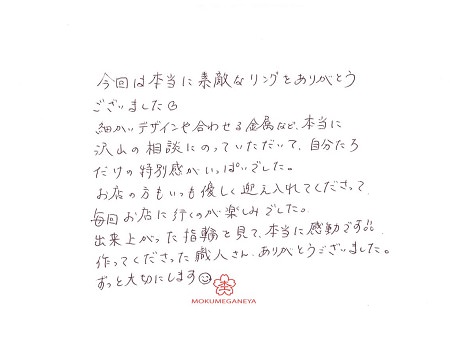 今回は本当に素敵なリングをありがとう
ございました☺
細かいデザインや合わせる金属など、本当に
沢山の相談にのっていただいて、自分たち
だけの特別感がいっぱいでした。
お店の方もいつも優しく迎え入れてくださって、
毎回お店に行くのが楽しみでした。
出来上がった指輪を見て、本当に感動です!!
作ってくださった職人さん、ありがとうございました。
ずっと大切にします☺
MOKUMEGANEYA